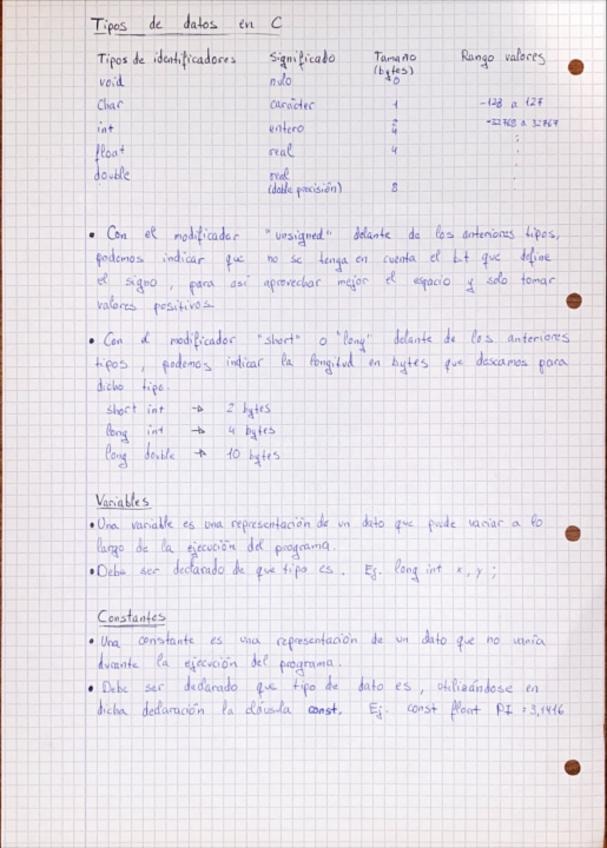 Tipos de datos en C
Tipos de identificadores Significado Tamaño (bytes) Rango valores
void nulo 0
Char carácter 1 -128 a 127
int entero 2 4 -32768 a 32767
float real 4 :
double real (doble precisión) 8 :
• Con el modificador "unsigned" delante de los anteriores tipos,
podemos indicar que no se tenga en cuenta el bit que define
el signo, para así aprovechar mejor el espacio y solo tomar
valores positivos.
• Con el modificador "short" o "long" delante de los anteriores
tipos, podemos indicar la longitud en bytes que deseamos para
dicho tipo.
short int → 2 bytes
long int → 4 bytes
long double → 10 bytes
Variables
• Una variable es una representación de un dato que puede variar a lo
largo de la ejecución del programa.
• Debe ser declarado de que tipo es. Ej. long int x, y ;
Constantes
• Una constante es una representación de un dato que no varía
durante la ejecución del programa.
• Debe ser declarado que tipo de dato es, utilizándose en
dicha declaración la cláusula const. Ej. const float PI = 3,1416